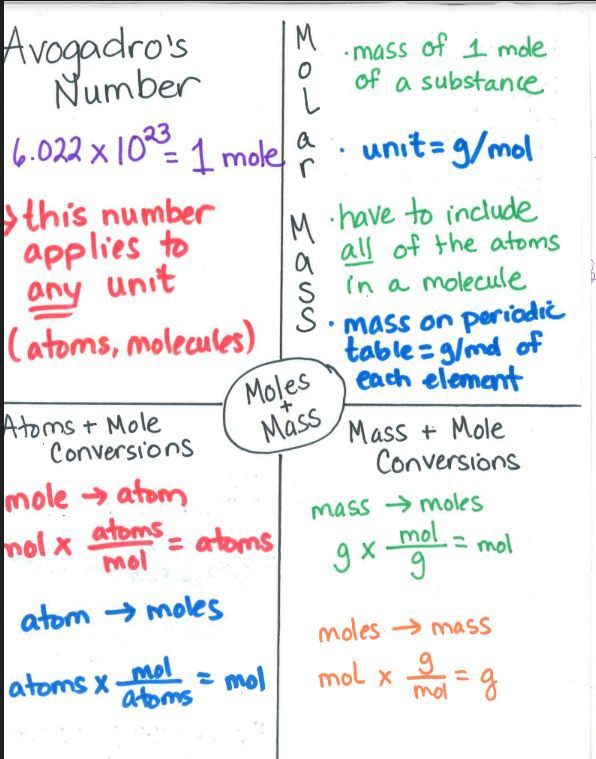 Avogadro's
Number
6.022 x 10²³ = 1 mole
→ this number
applies to
any unit
(atoms, molecules)
Molar
Mass
· mass of 1 mole
of a substance
· unit = g/mol
· have to include
all of the atoms
in a molecule
· mass on periodic
table = g/mol of
each element
Moles
+
Mass
Atoms + Mole
Conversions
mole → atom
mol x atoms/mol = atoms
atom → moles
atoms x mol/atoms = mol
Mass + Mole
Conversions
mass → moles
g x mol/g = mol
moles → mass
mol x g/mol = g